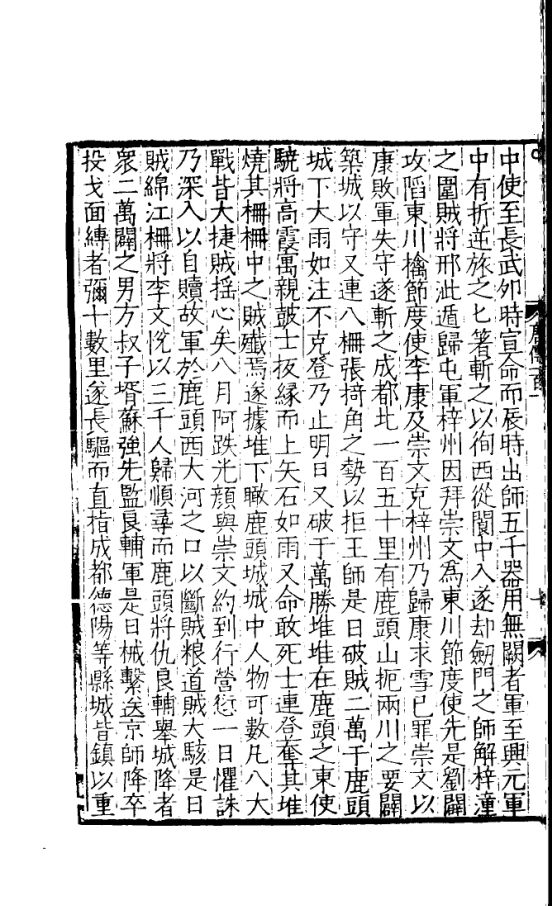 中使至長武卯時宣命而辰時出師五千器用無闕者軍至興元軍
中有折逆旅之匕箸斬之以徇西從閬中入遂却劒門之師解梓潼
之圍賊將邢泚遁歸屯軍梓州因拜崇文為東川節度使先是劉闢
攻䧟東川擒節度使李康及崇文克梓州乃歸康求雪已罪崇文以
康敗軍失守遂斬之成都北一百五十里有鹿頭山扼兩川之要闢
築城以守又連八柵張掎角之勢以拒王師是日破賊二萬于鹿頭
城下大雨如注不克登乃止明日又破于萬勝堆堆在鹿頭之東使
驍將高霞寓親鼓士扳緣而上矢石如雨又命敢死士連登奪其堆
燒其柵柵中之賊殲焉遂據堆下瞰鹿頭城城中人物可數凡八大
戰皆大捷賊揺心矣八月阿跌光顔與崇文約到行營愆一日懼誅
乃深入以自贖故軍於鹿頭西大河之口以斷賊粮道賊大駭是日
賊綿江柵將李文恱以三千人歸順尋而鹿頭將仇良輔舉城降者
衆二萬闢之男方叔子壻蘇強先監良輔軍是日械繫送京師降卒
投戈面縳者彌十數里遂長驅而直指成都德陽等縣城皆鎮以重